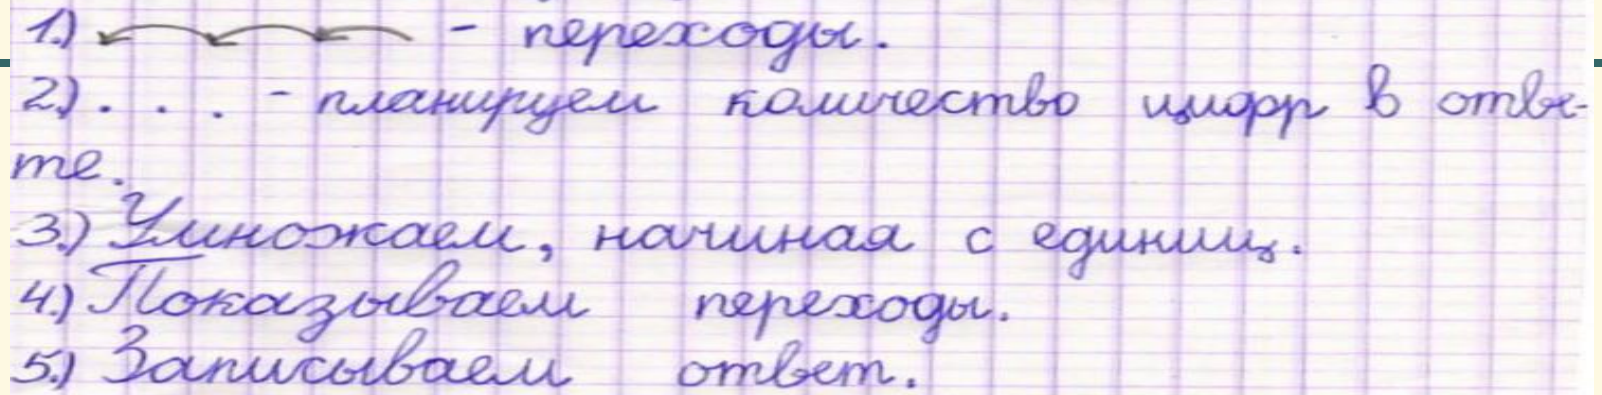 1.) - переходы.
2.) . . . - планируем количество цифр в отве-
те.
3.) Умножаем, начиная с единиц.
4.) Показываем переходы.
5.) Записываем ответ.